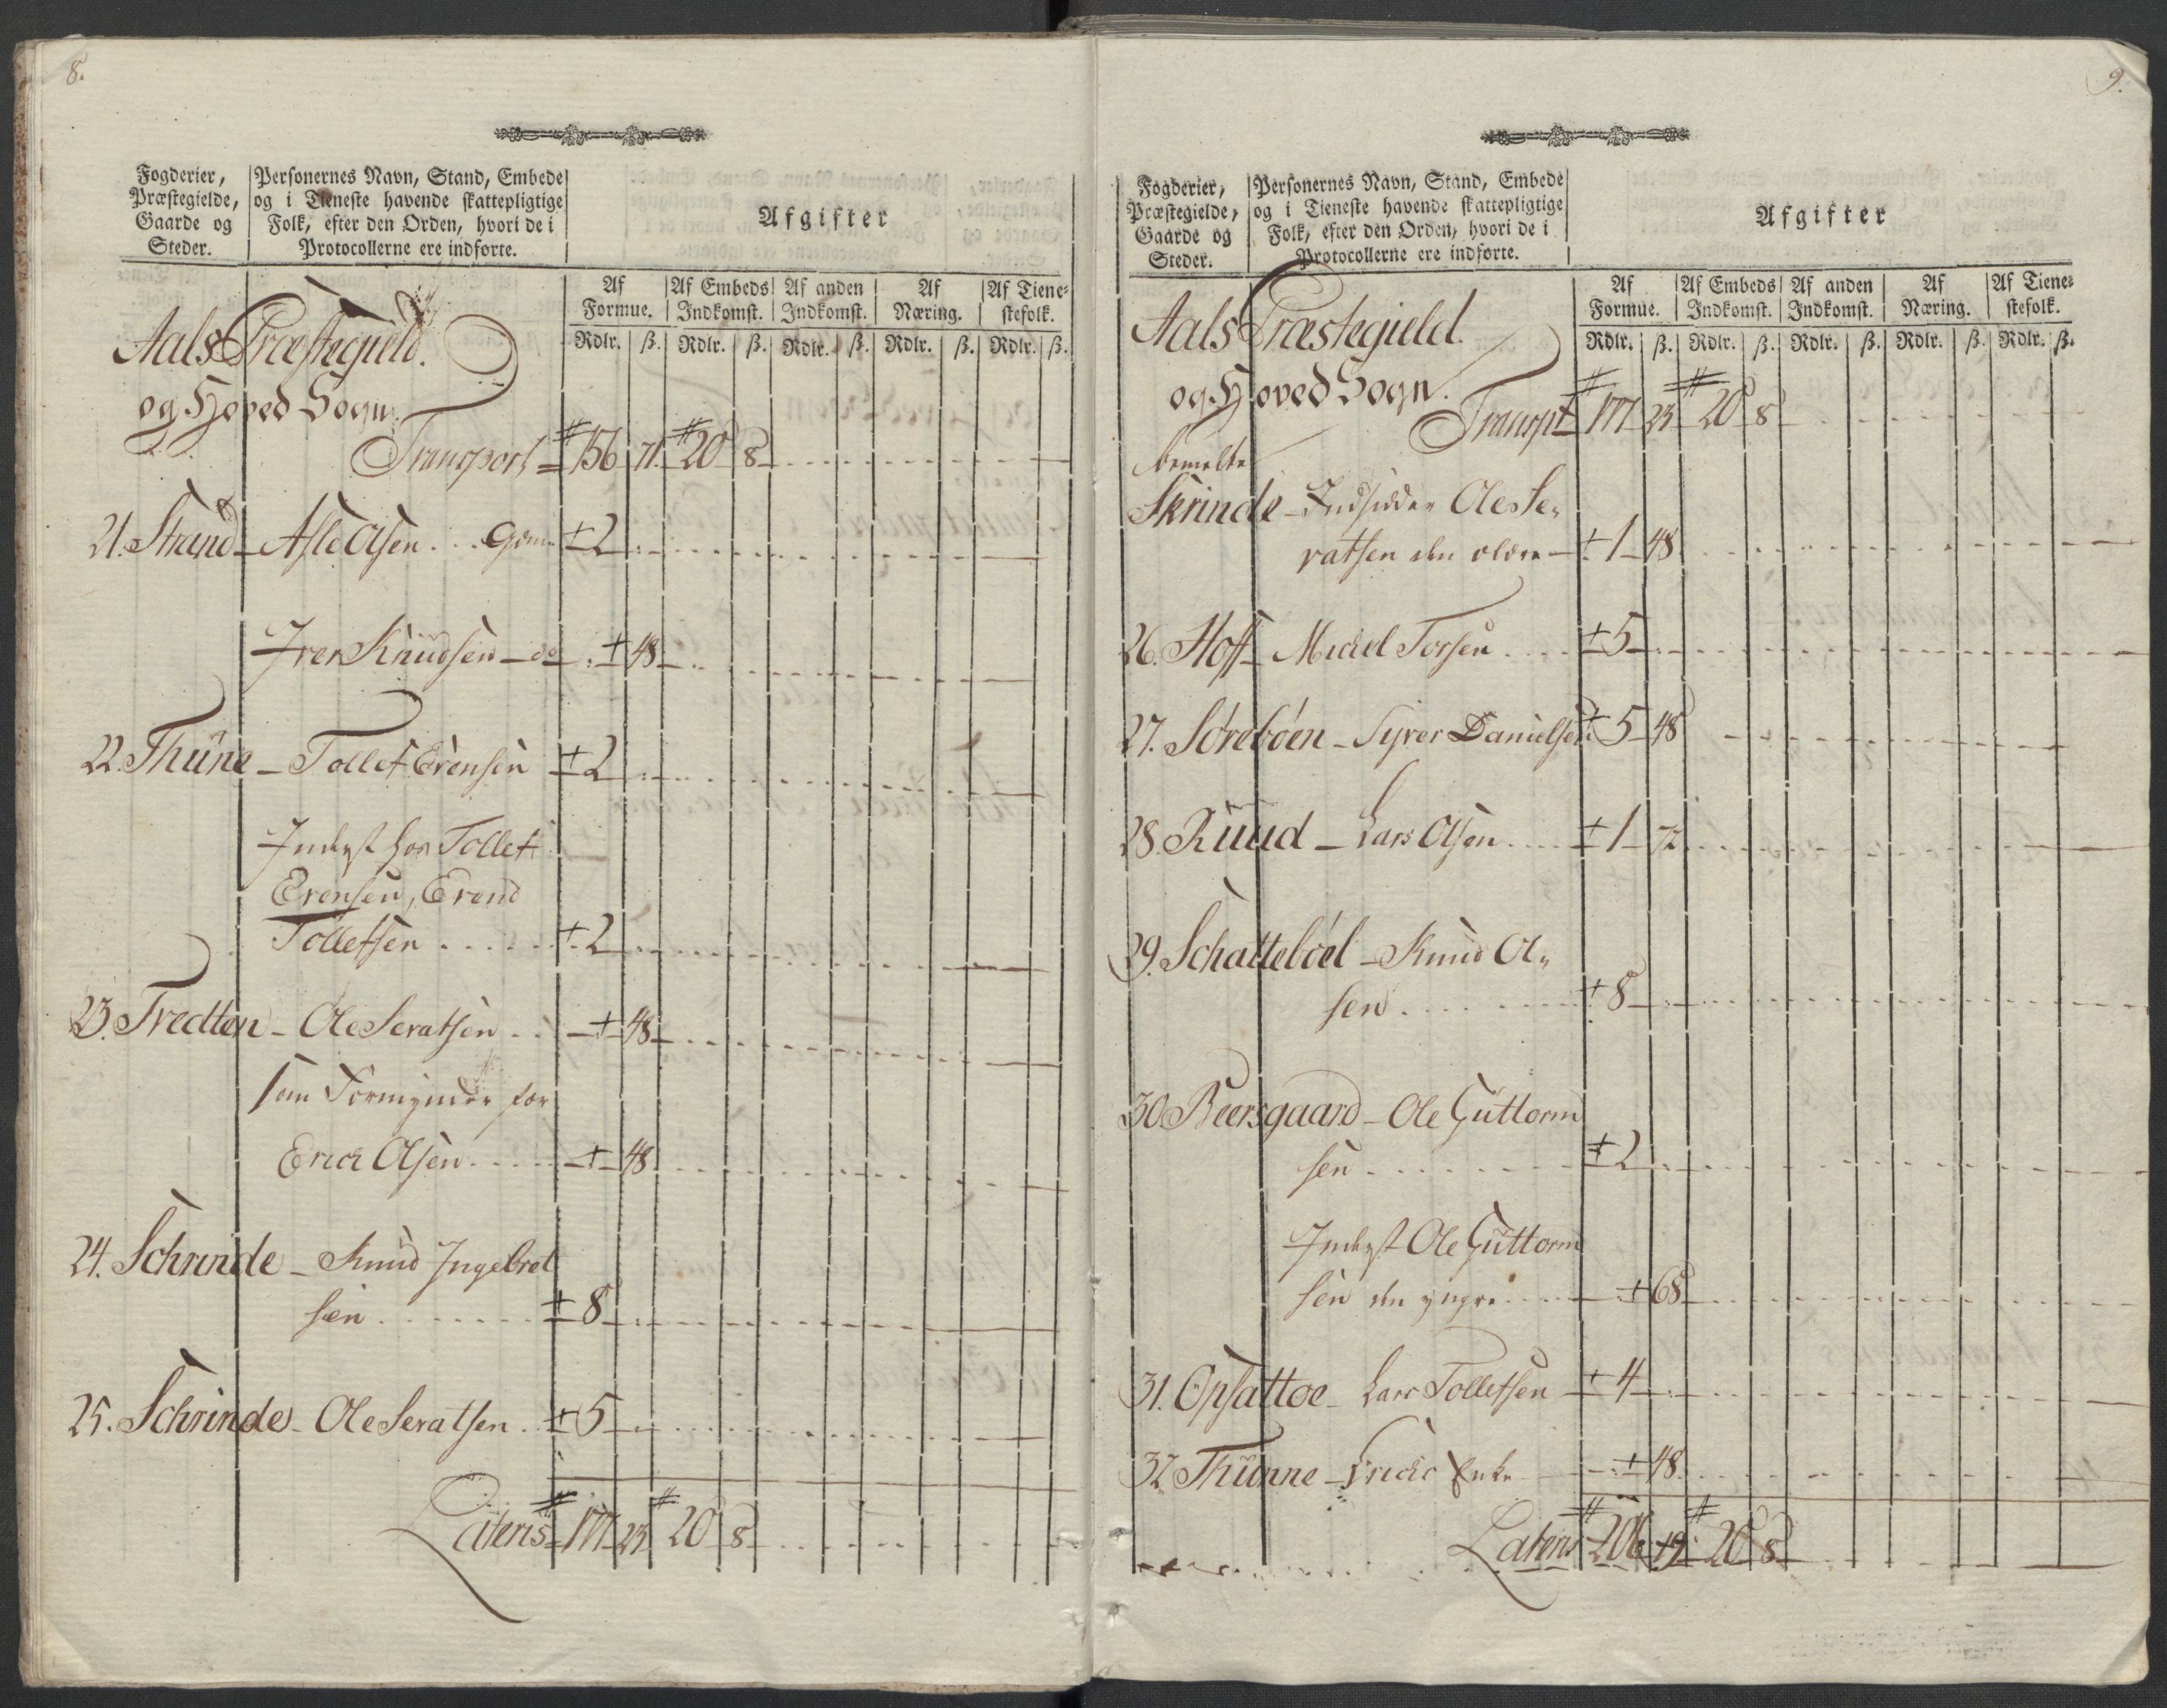 8.
Fogderier,
Præstegielde,
Gaarde og
Steder.
Personernes Navn, Stand, Embede
og i Tieneste havende skattepligtige
Folk, efter den Orden, hvori de i
Protocollerne ere indførte.
Afgifter
Af Formue. Af Embeds Indkomst. Af anden Indkomst. Af Næring. Af Tienestefolk.
Rdlr. ß. Rdlr. ß. Rdlr. ß. Rdlr. ß. Rdlr. ß.
Aals Præstegield.
og Hoved Sogn.
Transport 156 71 20 8
21. Strand Asle Olsen 2
Iver Knudsen do 48
22. Thune Tollef Evensen 2
Inderst hos Tollef
Evensen, Evend
Tollefsen 2
23. Tredten Ole Seratsen 48
som Formynder for
Erich Olsen 48
24. Schrinde Knud Ingebret
sen 8
25. Schrinde Ole Seratsen 5
Lateris 177 23 20 8
9.
Fogderier,
Præstegielde,
Gaarde og
Steder.
Personernes Navn, Stand, Embede
og i Tieneste havende skattepligtige
Folk, efter den Orden, hvori de i
Protocollerne ere indførte.
Afgifter
Af Formue. Af Embeds Indkomst. Af anden Indkomst. Af Næring. Af Tienestefolk.
Rdlr. ß. Rdlr. ß. Rdlr. ß. Rdlr. ß. Rdlr. ß.
Aals Præstegield.
og Hoved Sogn.
Transpt 177 23 20 8
bemelte
Skrinde Indsidder Ole Se,,
ratsen den eldre 1 48
26. Hoff Michel Torsen 5
27. Sørebøen Syver Danielsen 5 48
28. Ruud Lars Olsen 1 72
29. Schattebøel Knud Ol,,
sen 8
30. Beersgaard Ole Guttorm
sen 2
Inderst Ole Guttorm
sen den yngre 68
31. Opsattoe Lars Tollefsen 4
32. Thunne Erichs Enke 48
Lateris 206 19 20 8